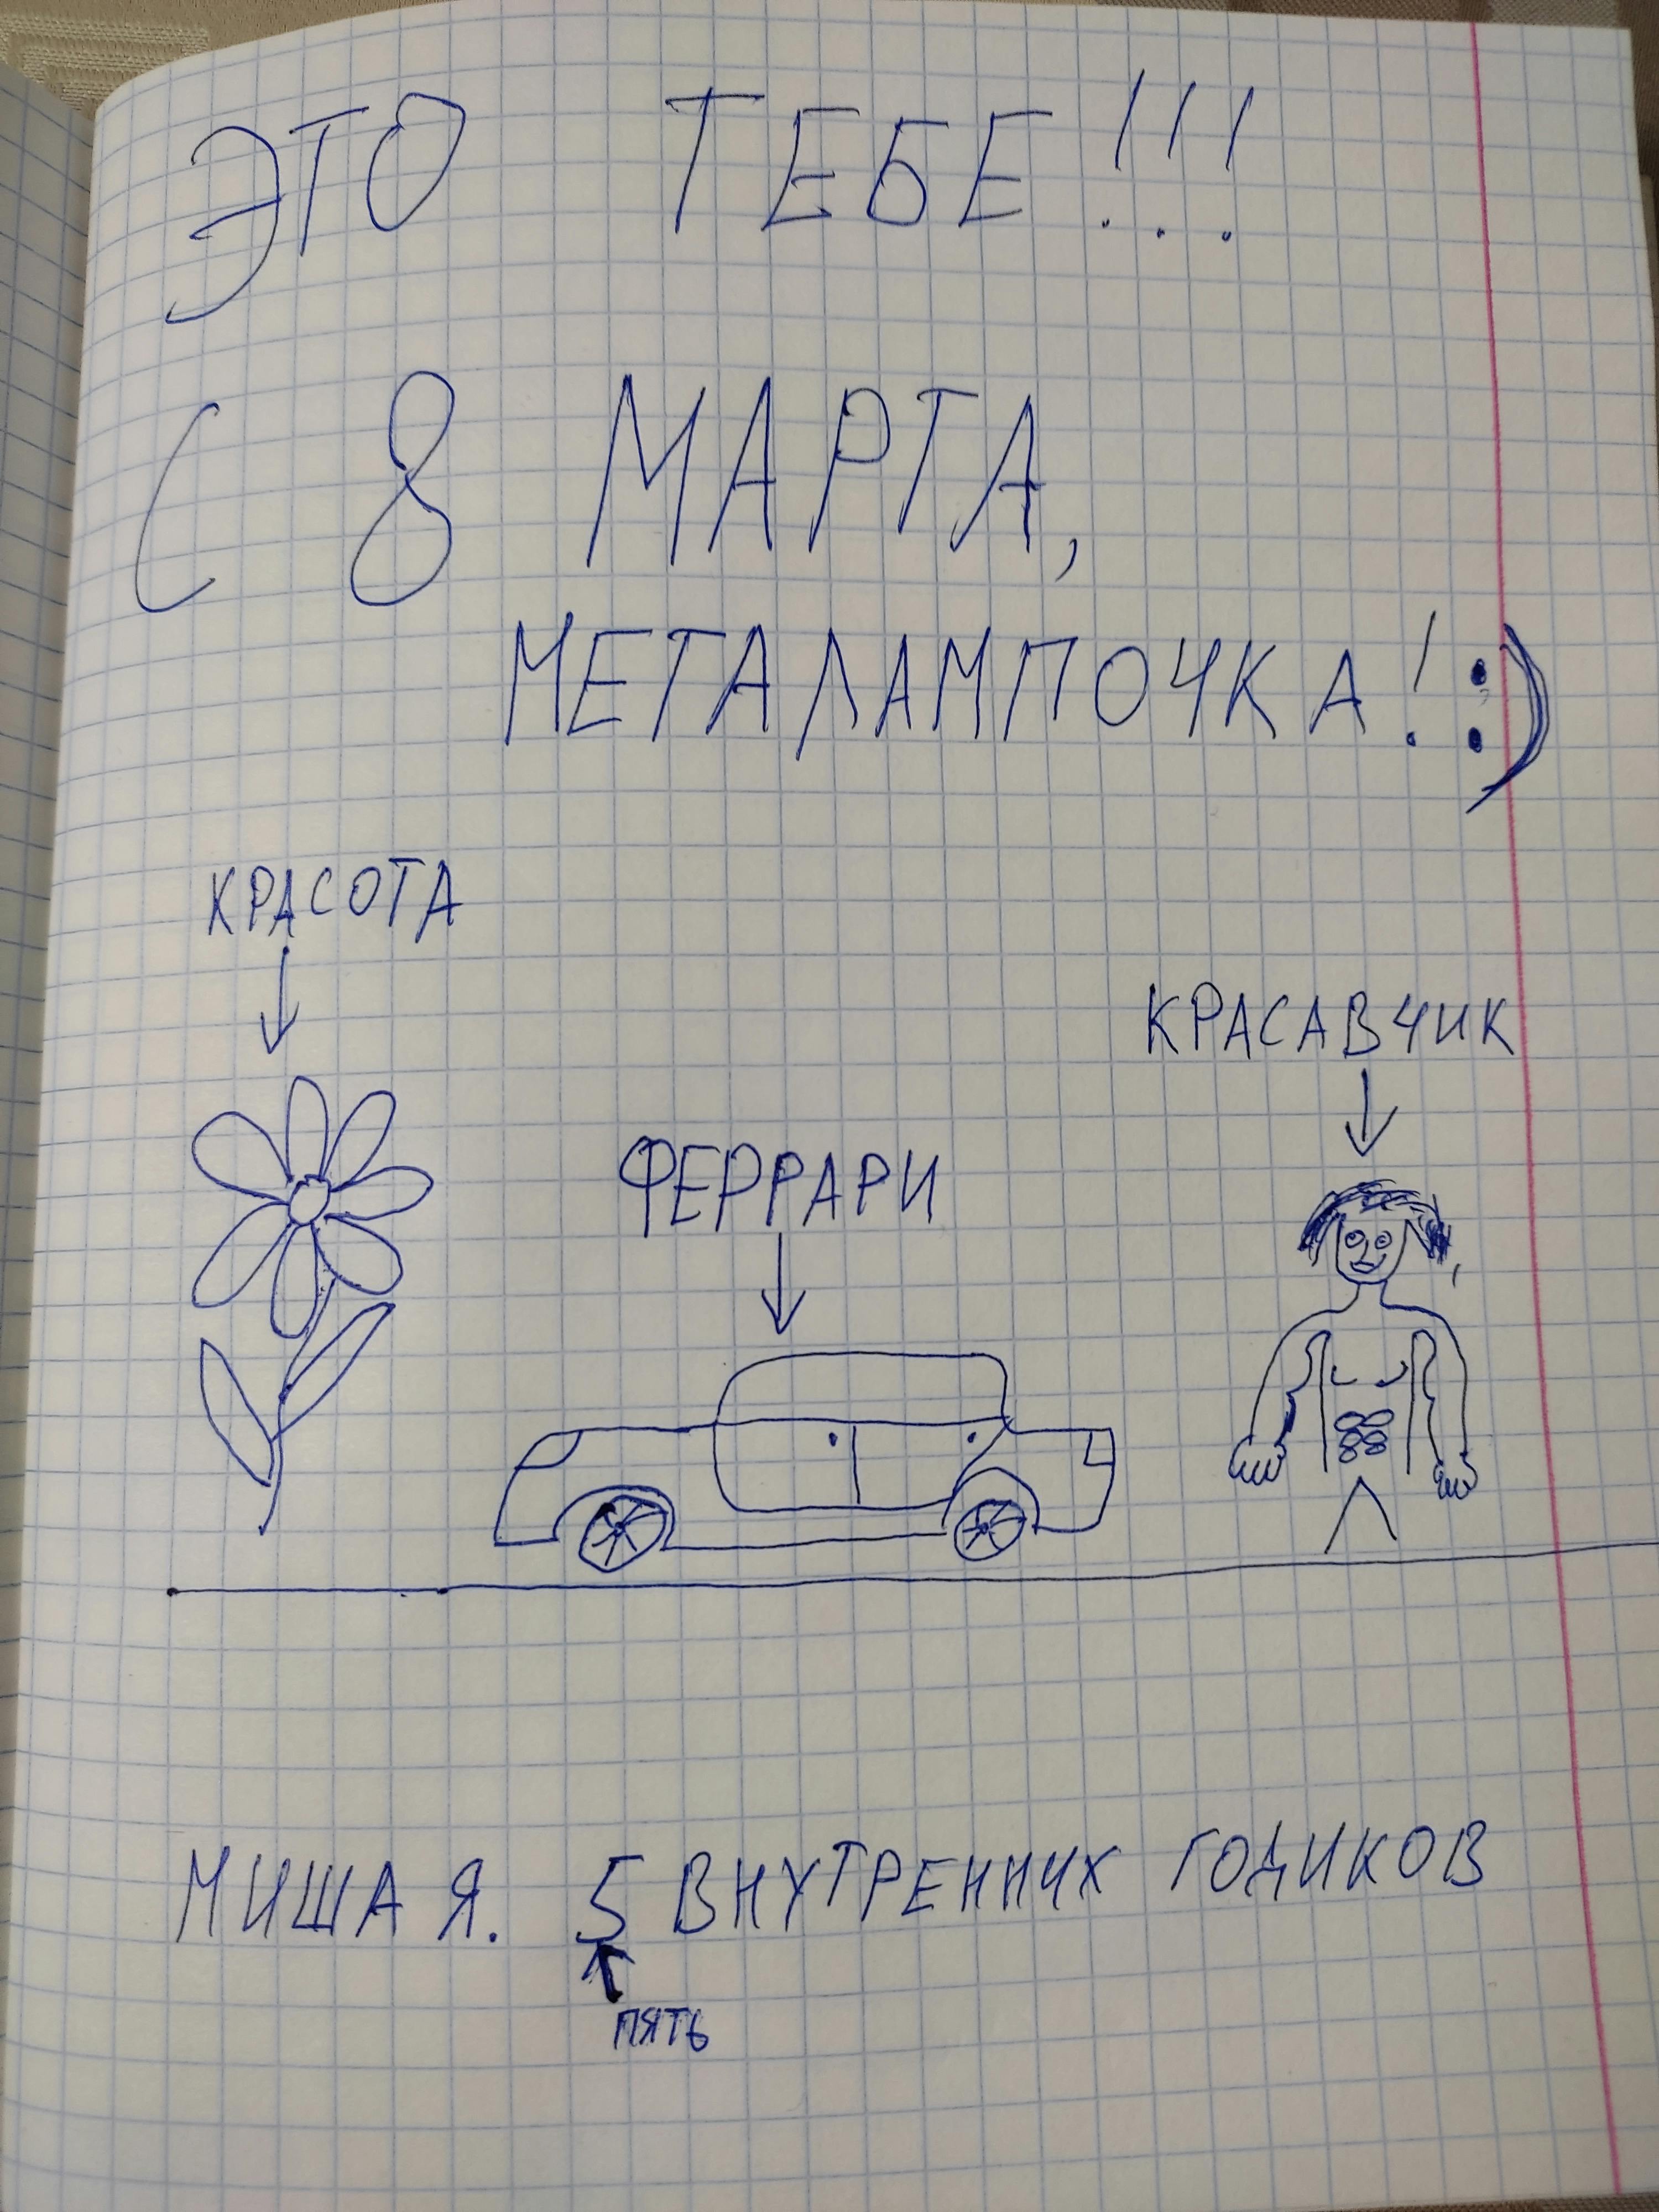 ЭТО ТЕБЕ!!!
С 8 МАРТА,
МЕТАЛАМПОЧКА! :)
КРАСОТА
КРАСАВЧИК
ФЕРРАРИ
МИША Я. 5 ВНУТРЕННИХ ГОДИКОВ
ПЯТЬ